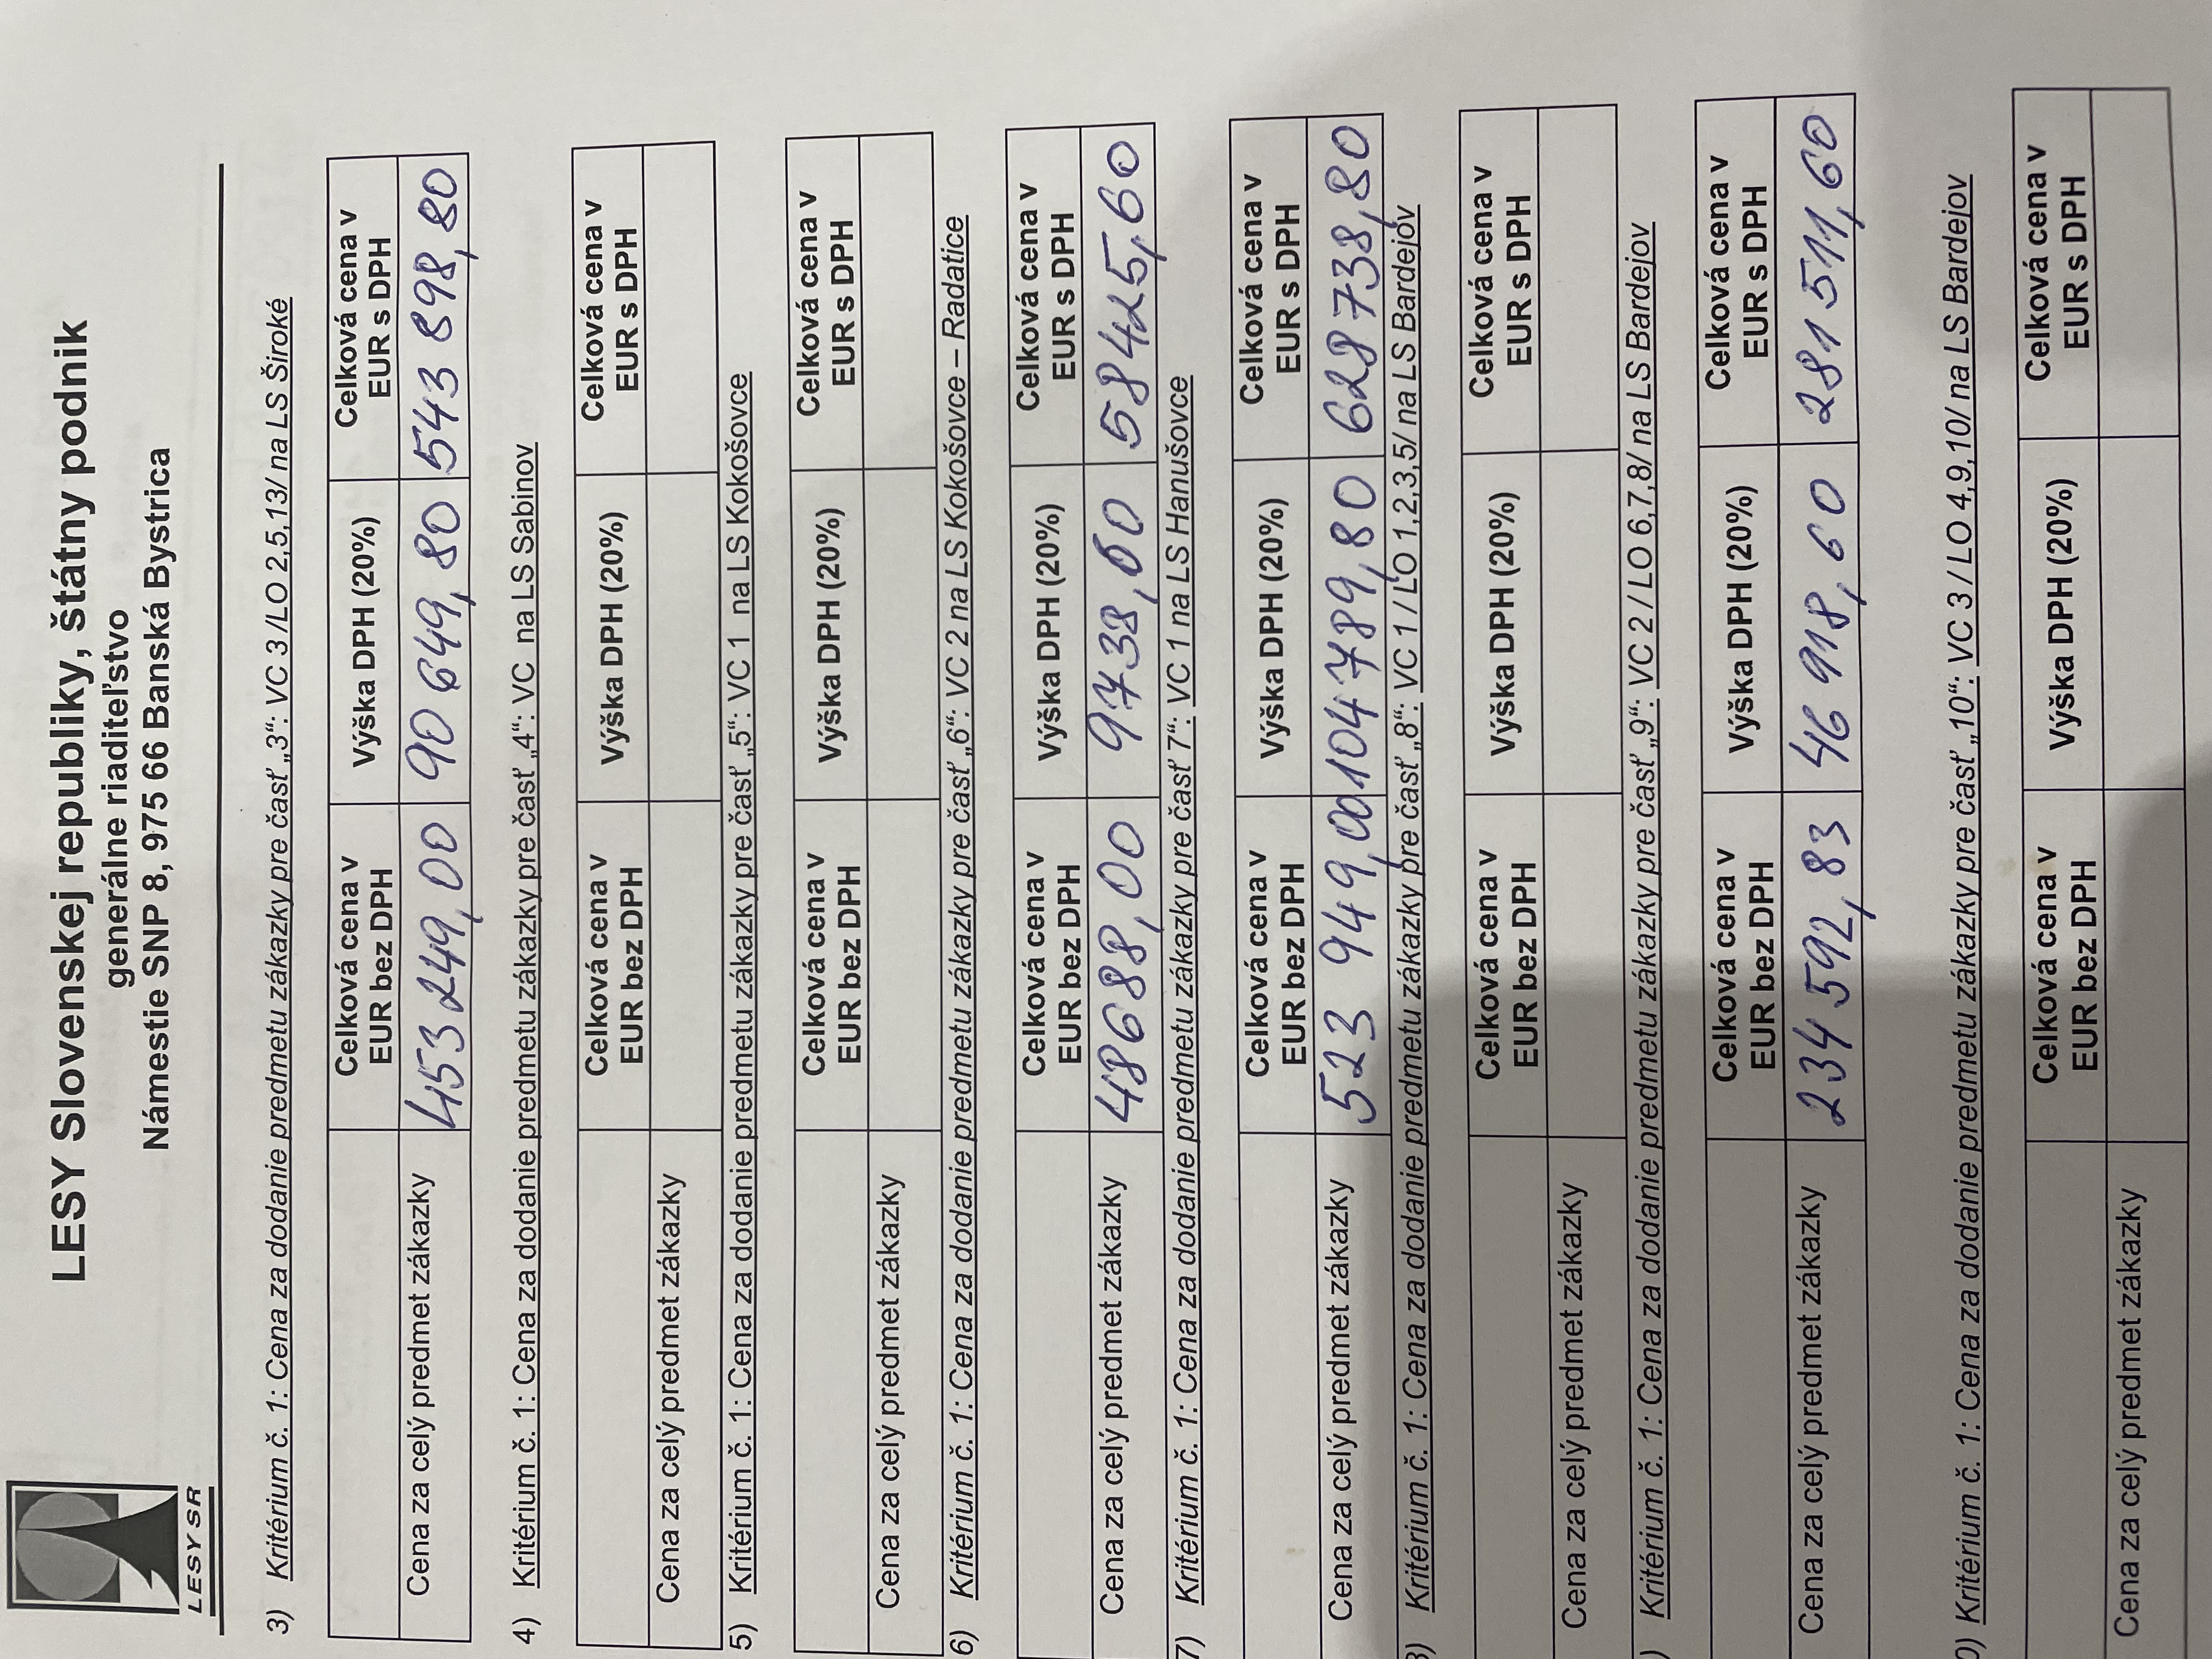 LESY SR
LESY Slovenskej republiky, štátny podnik
generálne riaditeľstvo
Námestie SNP 8, 975 66 Banská Bystrica
3) Kritérium č. 1: Cena za dodanie predmetu zákazky pre časť „3“: VC 3 /LO 2,5,13/ na LS Široké
Celková cena v EUR bez DPH Výška DPH (20%) Celková cena v EUR s DPH
Cena za celý predmet zákazky 453 249,00 90 649,80 543 898,80
4) Kritérium č. 1: Cena za dodanie predmetu zákazky pre časť „4“: VC na LS Sabinov
Celková cena v EUR bez DPH Výška DPH (20%) Celková cena v EUR s DPH
Cena za celý predmet zákazky
5) Kritérium č. 1: Cena za dodanie predmetu zákazky pre časť „5“: VC 1 na LS Kokošovce
Celková cena v EUR bez DPH Výška DPH (20%) Celková cena v EUR s DPH
Cena za celý predmet zákazky
6) Kritérium č. 1: Cena za dodanie predmetu zákazky pre časť „6“: VC 2 na LS Kokošovce – Radatice
Celková cena v EUR bez DPH Výška DPH (20%) Celková cena v EUR s DPH
Cena za celý predmet zákazky 48688,00 9738,60 58425,60
7) Kritérium č. 1: Cena za dodanie predmetu zákazky pre časť 7“: VC 1 na LS Hanušovce
Celková cena v EUR bez DPH Výška DPH (20%) Celková cena v EUR s DPH
Cena za celý predmet zákazky 523 949,00 104 789,80 628 738,80
) Kritérium č. 1: Cena za dodanie predmetu zákazky pre časť „8“: VC 1 / LO 1,2,3,5/ na LS Bardejov
Celková cena v EUR bez DPH Výška DPH (20%) Celková cena v EUR s DPH
Cena za celý predmet zákazky
) Kritérium č. 1: Cena za dodanie predmetu zákazky pre časť „9“: VC 2 / LO 6,7,8/ na LS Bardejov
Celková cena v EUR bez DPH Výška DPH (20%) Celková cena v EUR s DPH
Cena za celý predmet zákazky 234 592,83 46 918,60 281 511,60
0) Kritérium č. 1: Cena za dodanie predmetu zákazky pre časť „10“: VC 3 / LO 4,9,10/ na LS Bardejov
Celková cena v EUR bez DPH Výška DPH (20%) Celková cena v EUR s DPH
Cena za celý predmet zákazky